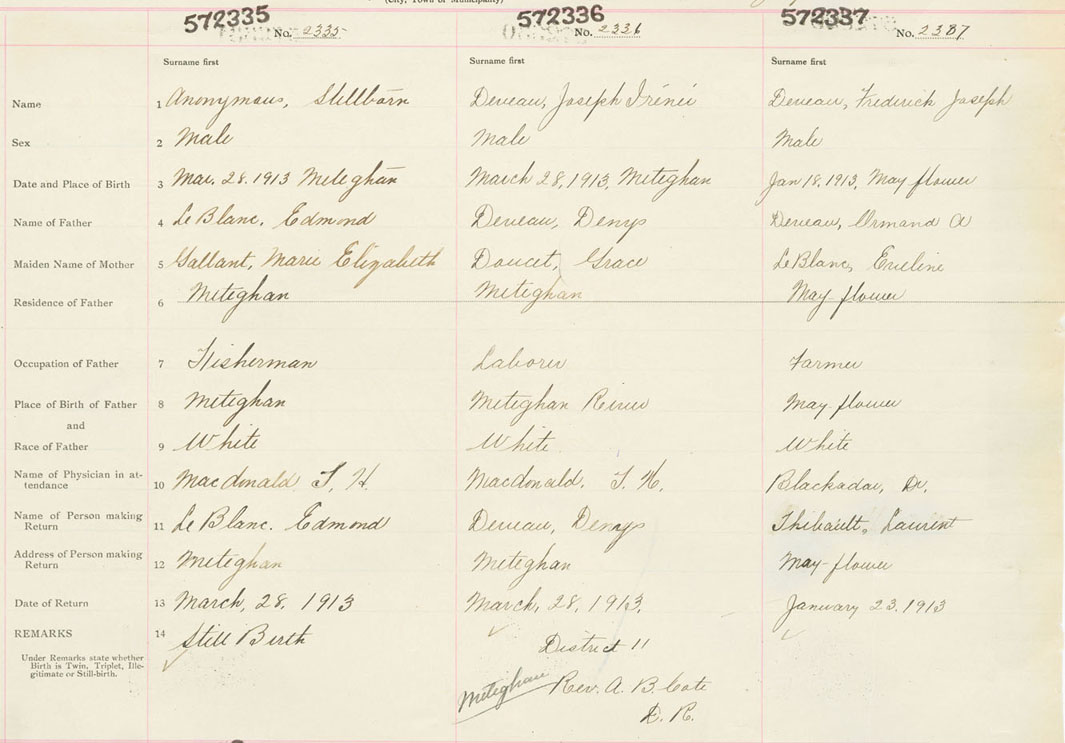 (City, Town or Municipality)
572335 No. 2335 572336 No. 2336 572337 No. 2337
Surname first Surname first Surname first
Name 1 Anonymous, Stillborn Deveau, Joseph Irénéi Deveau, Frederick Joseph
Sex 2 Male Male Male
Date and Place of Birth 3 Mar. 28. 1913 Meteghan March 28, 1913, Meteghan Jan 18, 1913, May flower
Name of Father 4 Le Blanc, Edmond Deveau, Denys Deveau, Ormand A
Maiden Name of Mother 5 Gallant, Marie Elizabeth Doucet, Grace LeBlanc, Eveline
Residence of Father 6 Meteghan Meteghan May-flower
Occupation of Father 7 Fisherman Laborer Farmer
Place of Birth of Father 8 Meteghan Meteghan River May flower
and
Race of Father 9 White White White
Name of Physician in at-
tendance 10 Macdonald T. H. Macdonald. T. H. Blackadar, Dr.
Name of Person making
Return 11 Le Blanc. Edmond Deveau, Denys Thibault, Laurent
Address of Person making
Return 12 Meteghan Meteghan May-flower
Date of Return 13 March, 28, 1913 March, 28, 1913. January 23. 1913
REMARKS 14 Still Birth District 11
Under Remarks state whether
Birth is Twin, Triplet, Ille-
gitimate or Still-birth.
Meteghan Rev. A. B. Cote
D. R.